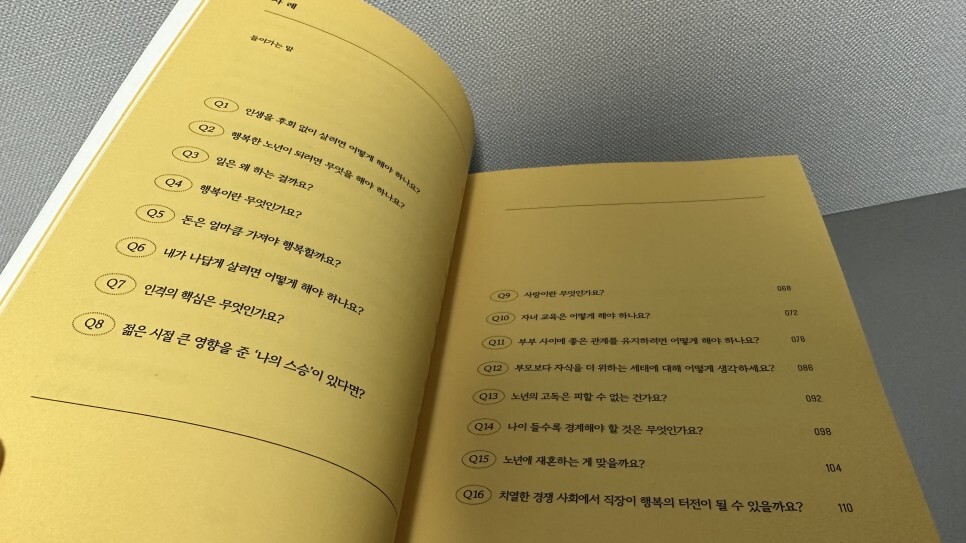 차 례
들어가는 말
Q1 인생을 후회 없이 살려면 어떻게 해야 하나요?
Q2 행복한 노년이 되려면 무엇을 해야 하나요?
Q3 일은 왜 하는 걸까요?
Q4 행복이란 무엇인가요?
Q5 돈은 얼마큼 가져야 행복할까요?
Q6 내가 나답게 살려면 어떻게 해야 하나요?
Q7 인격의 핵심은 무엇인가요?
Q8 젊은 시절 큰 영향을 준 '나의 스승'이 있다면?
Q9 사랑이란 무엇인가요? 068
Q10 자녀 교육은 어떻게 해야 하나요? 072
Q11 부부 사이에 좋은 관계를 유지하려면 어떻게 해야 하나요? 078
Q12 부모보다 자식을 더 위하는 세태에 대해 어떻게 생각하세요? 086
Q13 노년의 고독은 피할 수 없는 건가요? 092
Q14 나이 들수록 경계해야 할 것은 무엇인가요? 098
Q15 노년에 재혼하는 게 맞을까요? 104
Q16 치열한 경쟁 사회에서 직장이 행복의 터전이 될 수 있을까요? 110